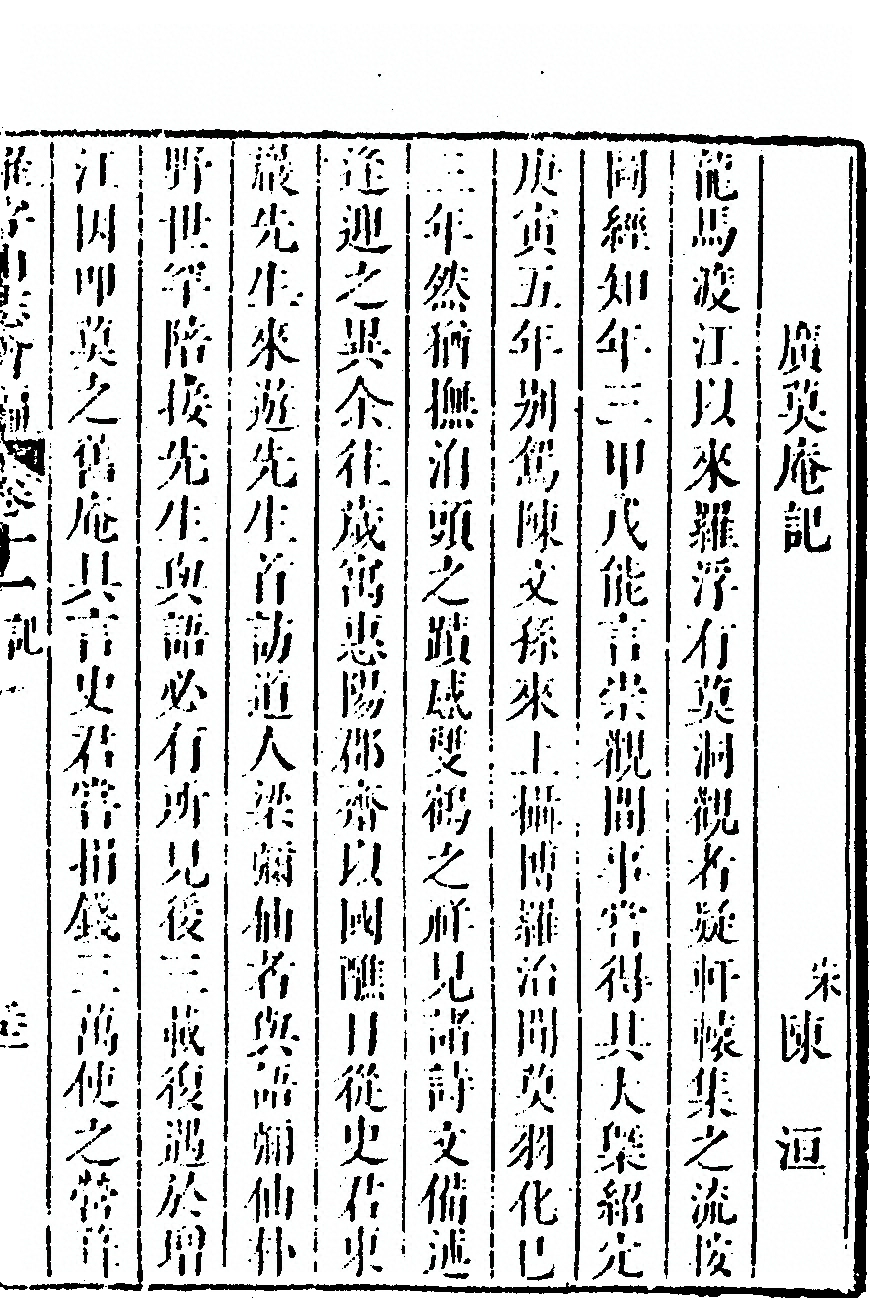 廣英庵記　宋陳洹
龍馬渡江以來羅浮有英洞觀者疑軒轅集之流按
圖經如年三甲戌能言崇觀間事嘗得其大槩紹定
庚寅五年別駕陳文孫來上攝博羅治聞英羽化已
三年然猶撫泊頭之蹟感雙鶴之祥見諸詩文備述
逢迎之異余往歲寓惠陽郡齋以國醮日從史君東
巖先生來遊先生首訪道人梁彌仙者與語彌仙朴
野世罕陪接先生與語必有所見後三載復遇於增
江因叩英之舊庵具言史君嘗捐錢三萬使之營葺
羅浮山志會編卷十一記一